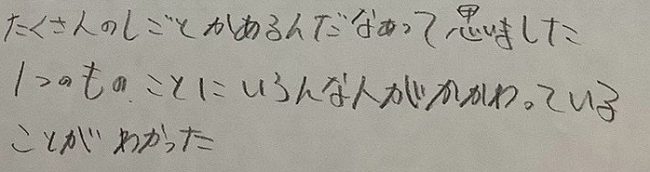 たくさんのしごとがあるんだなあって思いました
1つのものことにいろんな人がかかわっている
ことがわかった